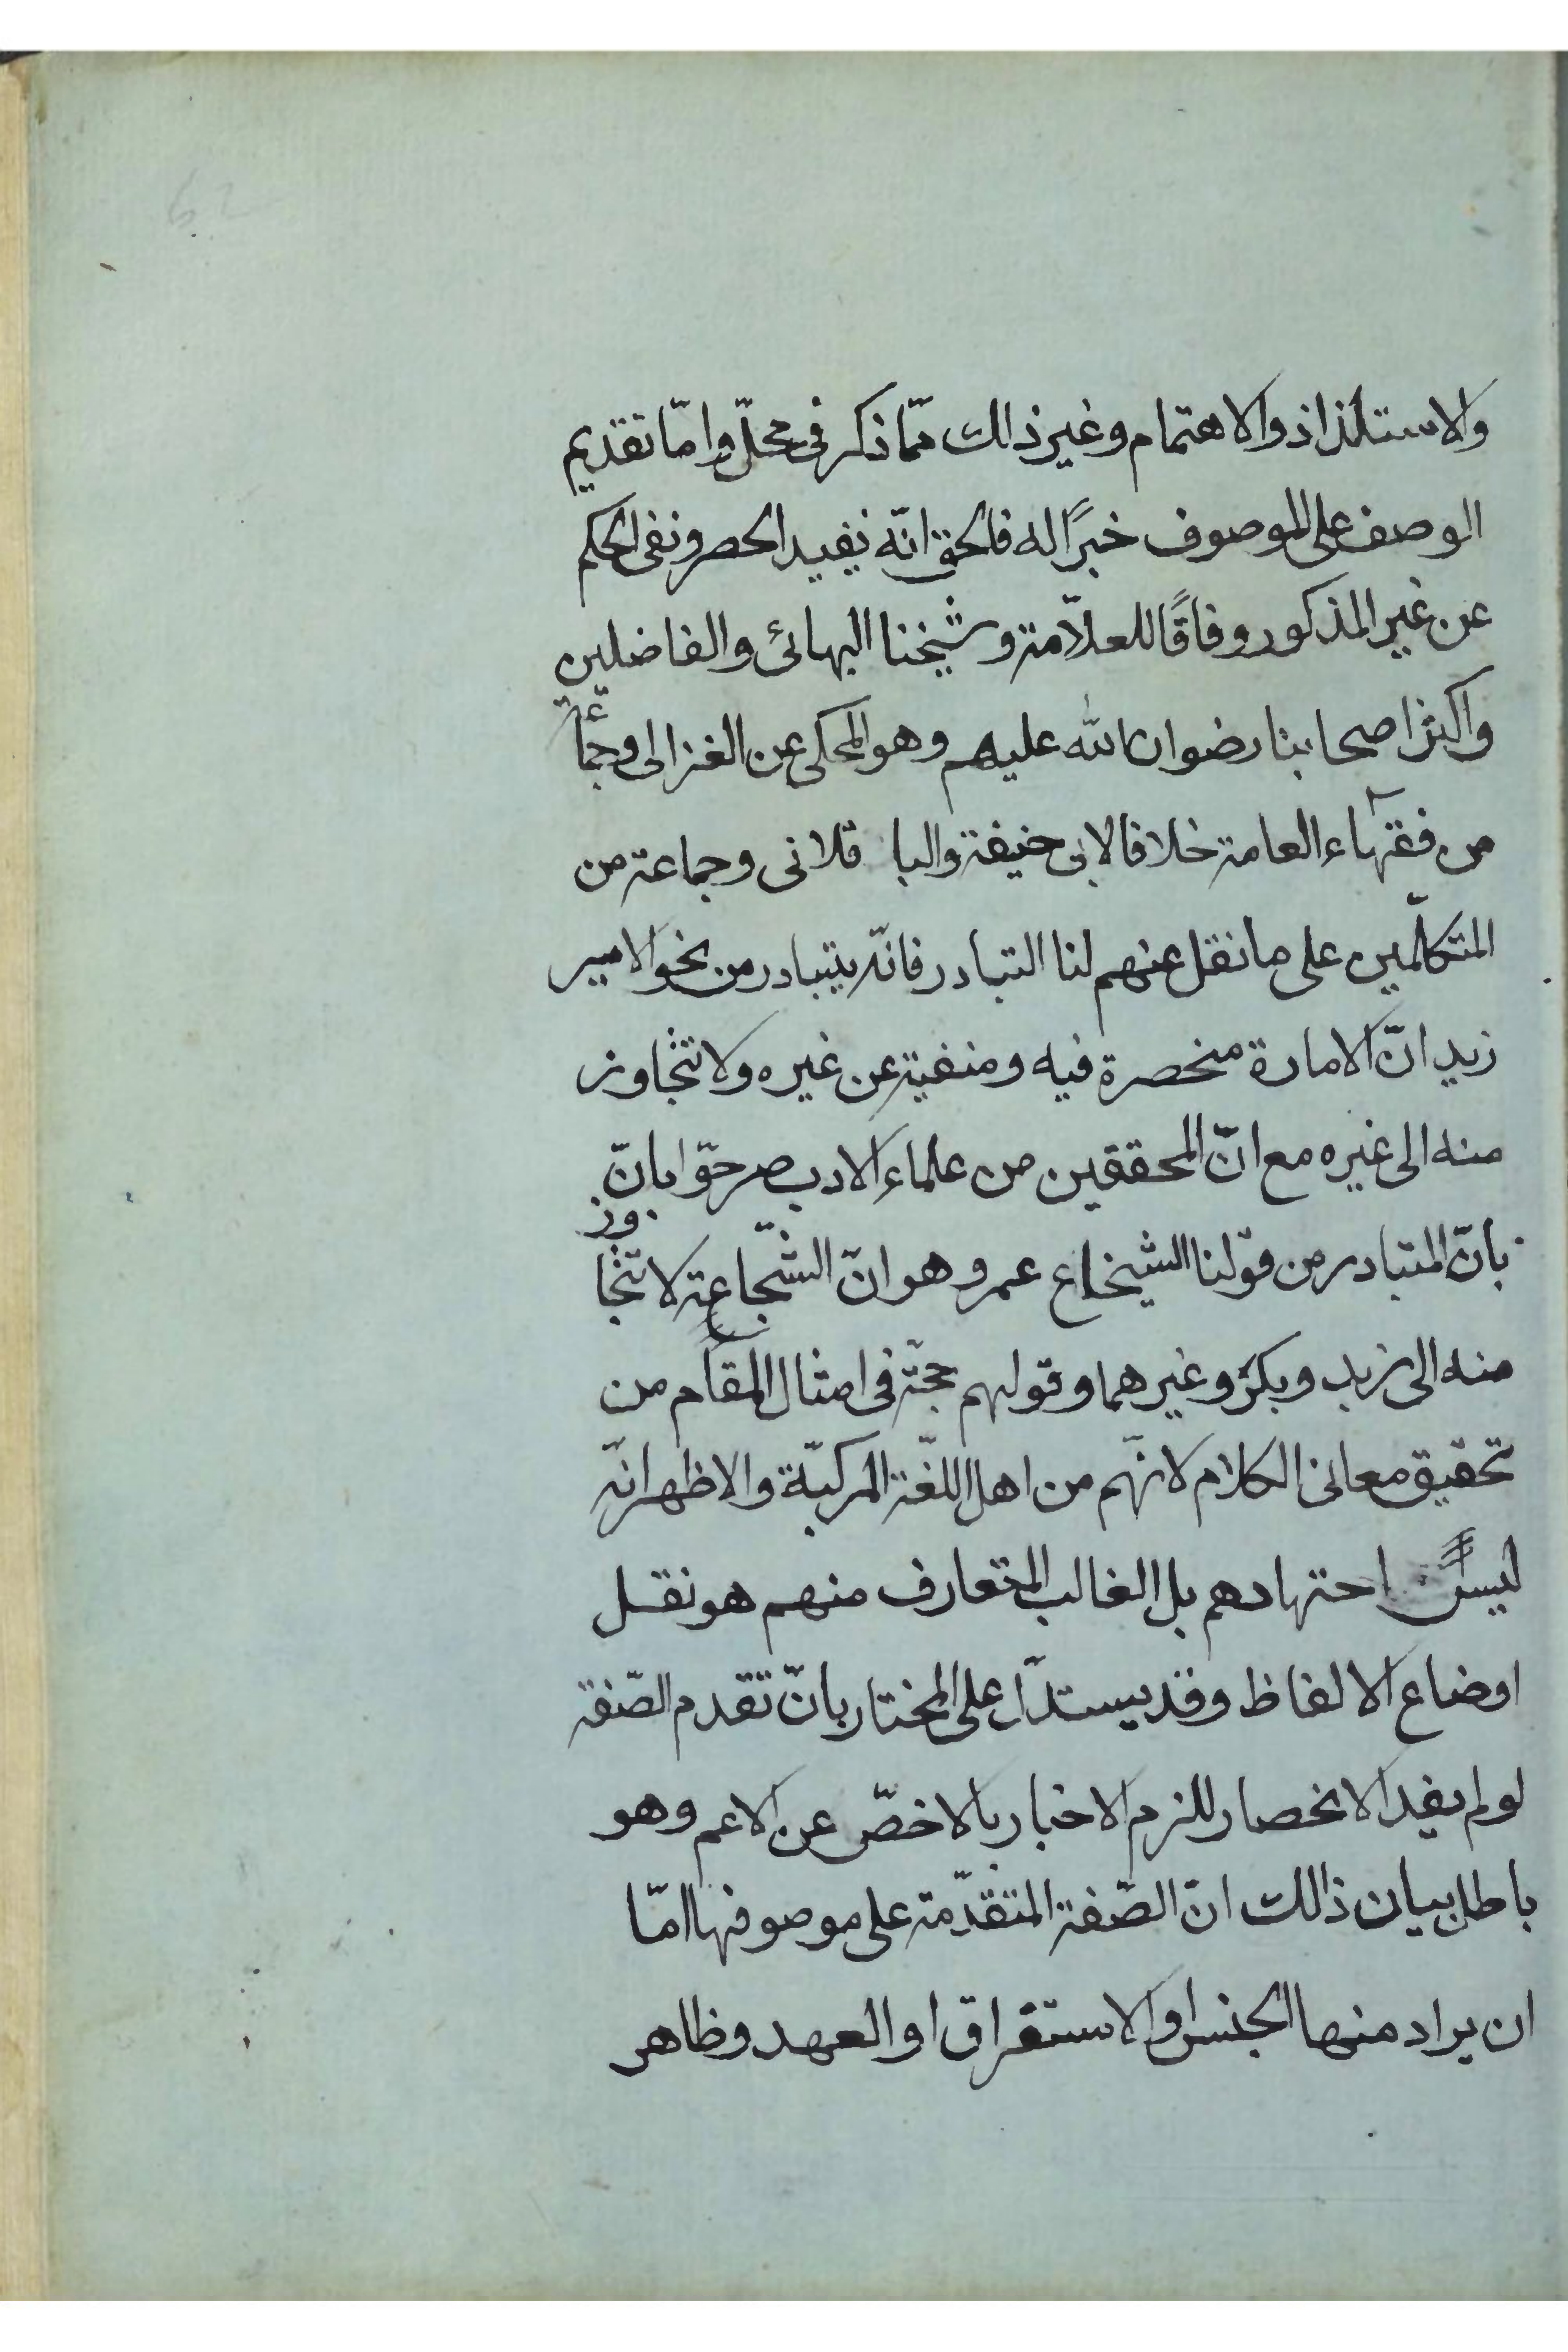 والاستلذاذ والاهتمام وغير ذالك ممّا ذكر فى محلّه وامّا تقديم
الوصف على الموصوف خبرًا له فالحق انّه يفيد الحصر ونفى الحكم
عن غير المذكور وفاقًا للعلاّمة وشيخنا البهائى والفاضلين
واكثر اصحابنا رضوان الله عليهم وهو المحكى عن الغزالى وجماعة
من فقهاء العامة خلافا لابى حنيفة والبا قلانى وجماعة من
المتكلّمين على ما نقل عنهم لنا التبادر فانّه يتبادر من نحو الامير
زيد انّ الامارة منحصرة فيه ومنفية عن غيره ولا تتجاوز
منه الى غيره مع انّ المحققين من علماء الادب صرحّوا بانّ
بانّ المتبادر من قولنا الشيخاع عمرو هو انّ الشّجاعة لا تتجاوز
منه الى زيد وبكر وغيرهما وقولهم حجّة فى امثال المقام من
تحقيق معانى الكلام لانّهم من اهل اللغّة المركبّة والاظهر انّه
ليس احتهادهم بل الغالب المتعارف منهم هو نقل
اوضاع الالفاظ وقد يستدّل على المختار بانّ تقدم الصّفة
لو لم يفد الانحصار للزم الاخبار بالاخصّ عن الاعم وهو
باطل بيان ذالك انّ الصّفة المتقدّمة على موصوفها امّا
ان يراد منها الجنس او الاستغراق او العهد وظاهر